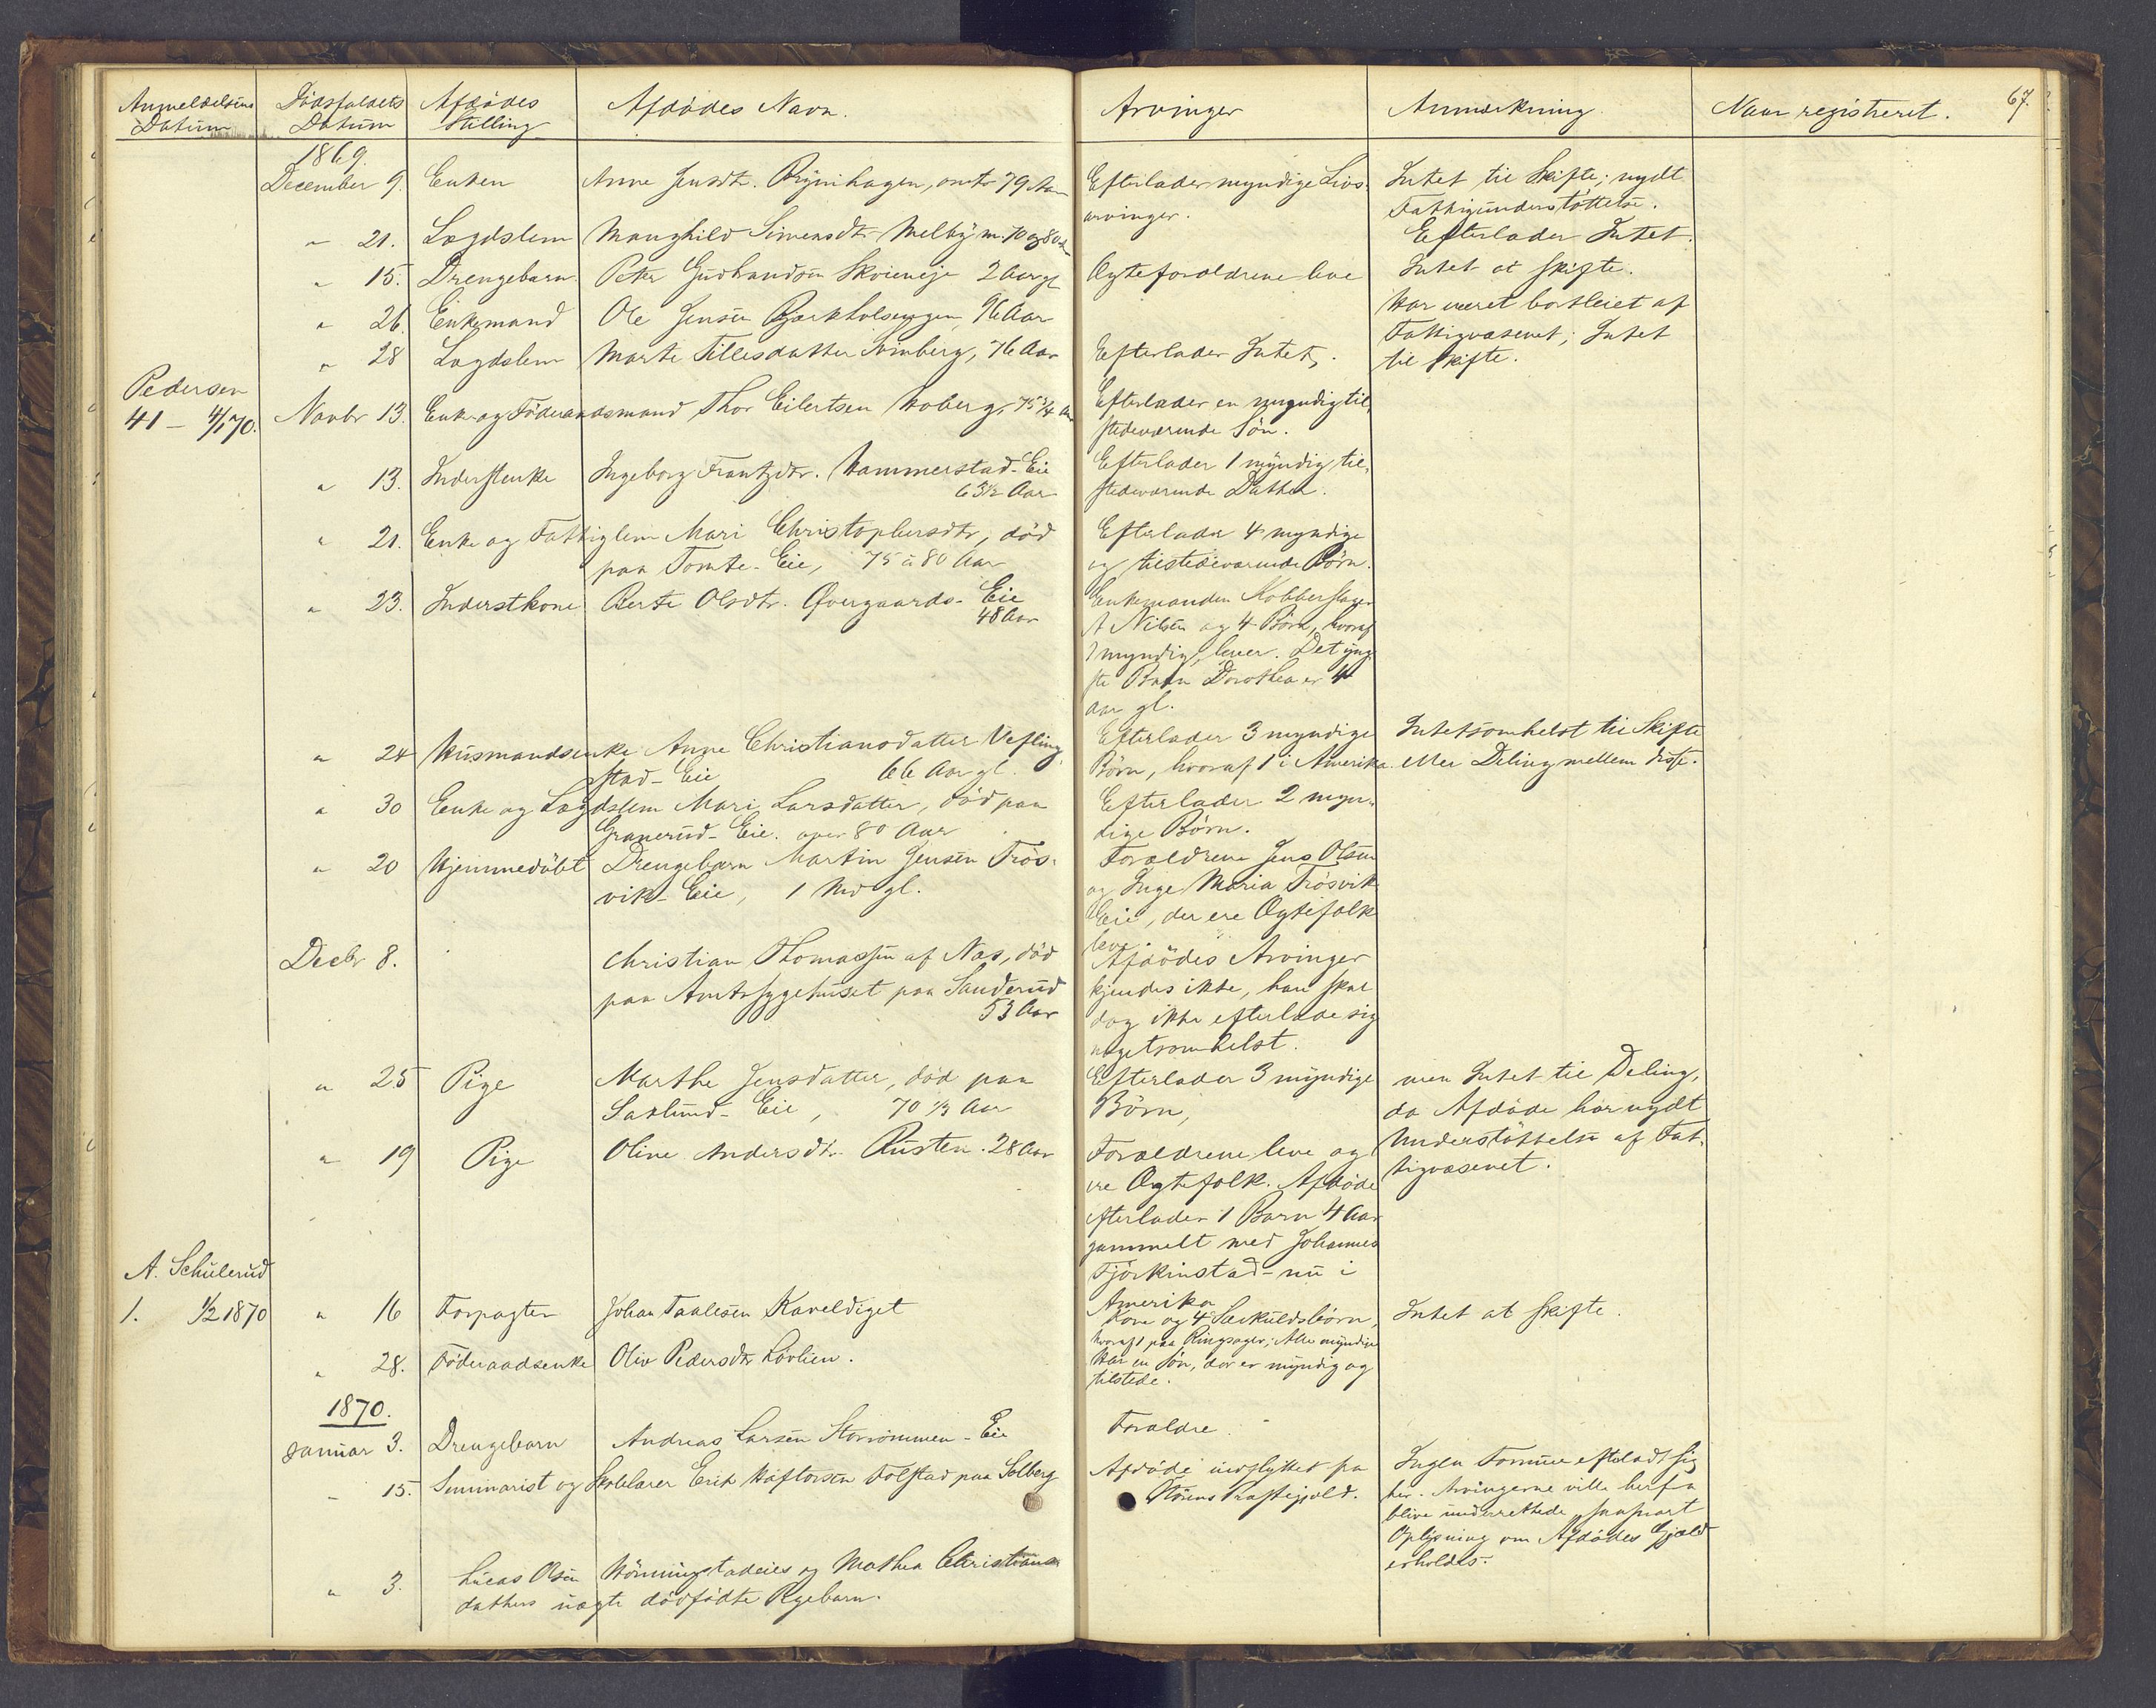 Anmeldelsens Datum | Dödsfaldets Datum | Afdödes Stilling | Afdödes Navn. | Arvinger | Anmærkning. | Naar registreret. 67.
1869.
December 9. Enken Anne Jensdtr. Brynihagen, omtr 79 Aar
Efterlader myndige Livs-
arvinger.
Intet til Skifte; nydt
Fattigunderstöttelse.
" 21. Lægdslem Maughild Simensdtr Melby m. 70 og 80 Aar
Efterlader Intet.
" 15. Drengebarn Peter Gudbrandsen Skoieneje 2 Aar gl
Ægteforældrene leve
Intet at skifte.
" 26. Enkemand Ole Jensen Bjerkholseggen, 96 Aar
Har været bortleiet af
Fattigvæsenet; Intet
til Skifte.
" 28 Lægdslem Marte Tillesdatter Svinberg, 76 Aar
Efterlader Intet.
Pedersen
41 - 4/1 70.
Novbr 13. Enke og Föderaadsmand Thor Eilertsen Hoberg, 75 3/4 Aar
Efterlader en myndig til-
stedeværende Sön.
" 13. Inderstenke Ingeborg Frantzdtr. Hammerstad-Eie
63 1/2 Aar
Efterlader 1 myndig til-
stedeværende Datter.
" 21. Enke og Fattiglem Mari Christophersdtr, död
paa Tomte-Eie, 75 à 80 Aar
Efterlader 4 myndige
og tilstedeværende Börn.
" 23. Inderstkone Berte Olsdtr. Øvergaards-Eie
48 Aar
Enkemanden Kobberslager
A Nilsen og 4 Börn, hvoraf
1 myndig, lever. Det yng-
ste Barn Dorothea er 4
Aar gl.
" 24 Husmandsenke Anne Christiansdatter Vefling-
stad-Eie 66 Aar gl.
Efterlader 3 myndige
Börn, hvoraf 1 i Amerika.
Intetsomhelst til Skifte
eller Deling mellem disse.
" 30 Enke og Lægdslem Mari Larsdatter, död paa
Granerud-Eie. over 80 Aar
Efterlader 2 myn-
dige Börn.
" 20 Hjemmedöbt Drengebarn Martin Jensen Frös-
vik-Eie, 1 Md gl.
Forældrene Jens Olsen
og Inge Maria Frösvik
Eie, der ere Ægtefolk
leve.
Decbr 8. Christian Thomassen af Næs, död
paa Amtssygehuset paa Sanderud
53 Aar
Afdödes Arvinger
kjendes ikke, han skal
dog ikke efterlade sig
nogetsomhelst.
" 25 Pige Marthe Jensdatter, död paa
Saxlund-Eie, 70 1/3 Aar
Efterlader 3 myndige
Börn,
men Intet til Deling,
da Afdöde har nydt
Understöttelse af Fat-
tigvæsenet.
" 19 Pige Oline Andersdtr. Rusten. 28 Aar
Forældrene leve og
ere Ægtefolk. Afdöde
efterlader 1 Barn 4 Aar
gammelt med Johannes
Fjörkinstad - nu i
Amerika
A. Schulerud
1. 1/2 1870
" 16 Forpagter Johan Paalesen Kaveldiget
Kone og 4 Særkuldsbörn,
hvoraf 1 paa Ringsager; Alle myndige
Intet at skifte.
" 28. Föderaadsenke Oliv Pedersdtr Lövlien.
Har en Sön, der er myndig og
tilstede.
1870.
Januar 3. Drengebarn Andreas Larsen Storrömmen-Eie
Forældre.
" 15. Seminarist og Skolelærer Erik Haftorsen Folstad paa Solberg
Afdöde indflyttet fra
Störens Præstegjeld.
Ingen Formue efterladt sig
her. Arvingerne ville herfra
blive underrettede saasnart
Oplysning om Afdödes Gjæld
erholdes.
" 3. Lucas Olsen Hönningstadeies og Mathea Christians-
datters uægte dödfödte Pigebarn.